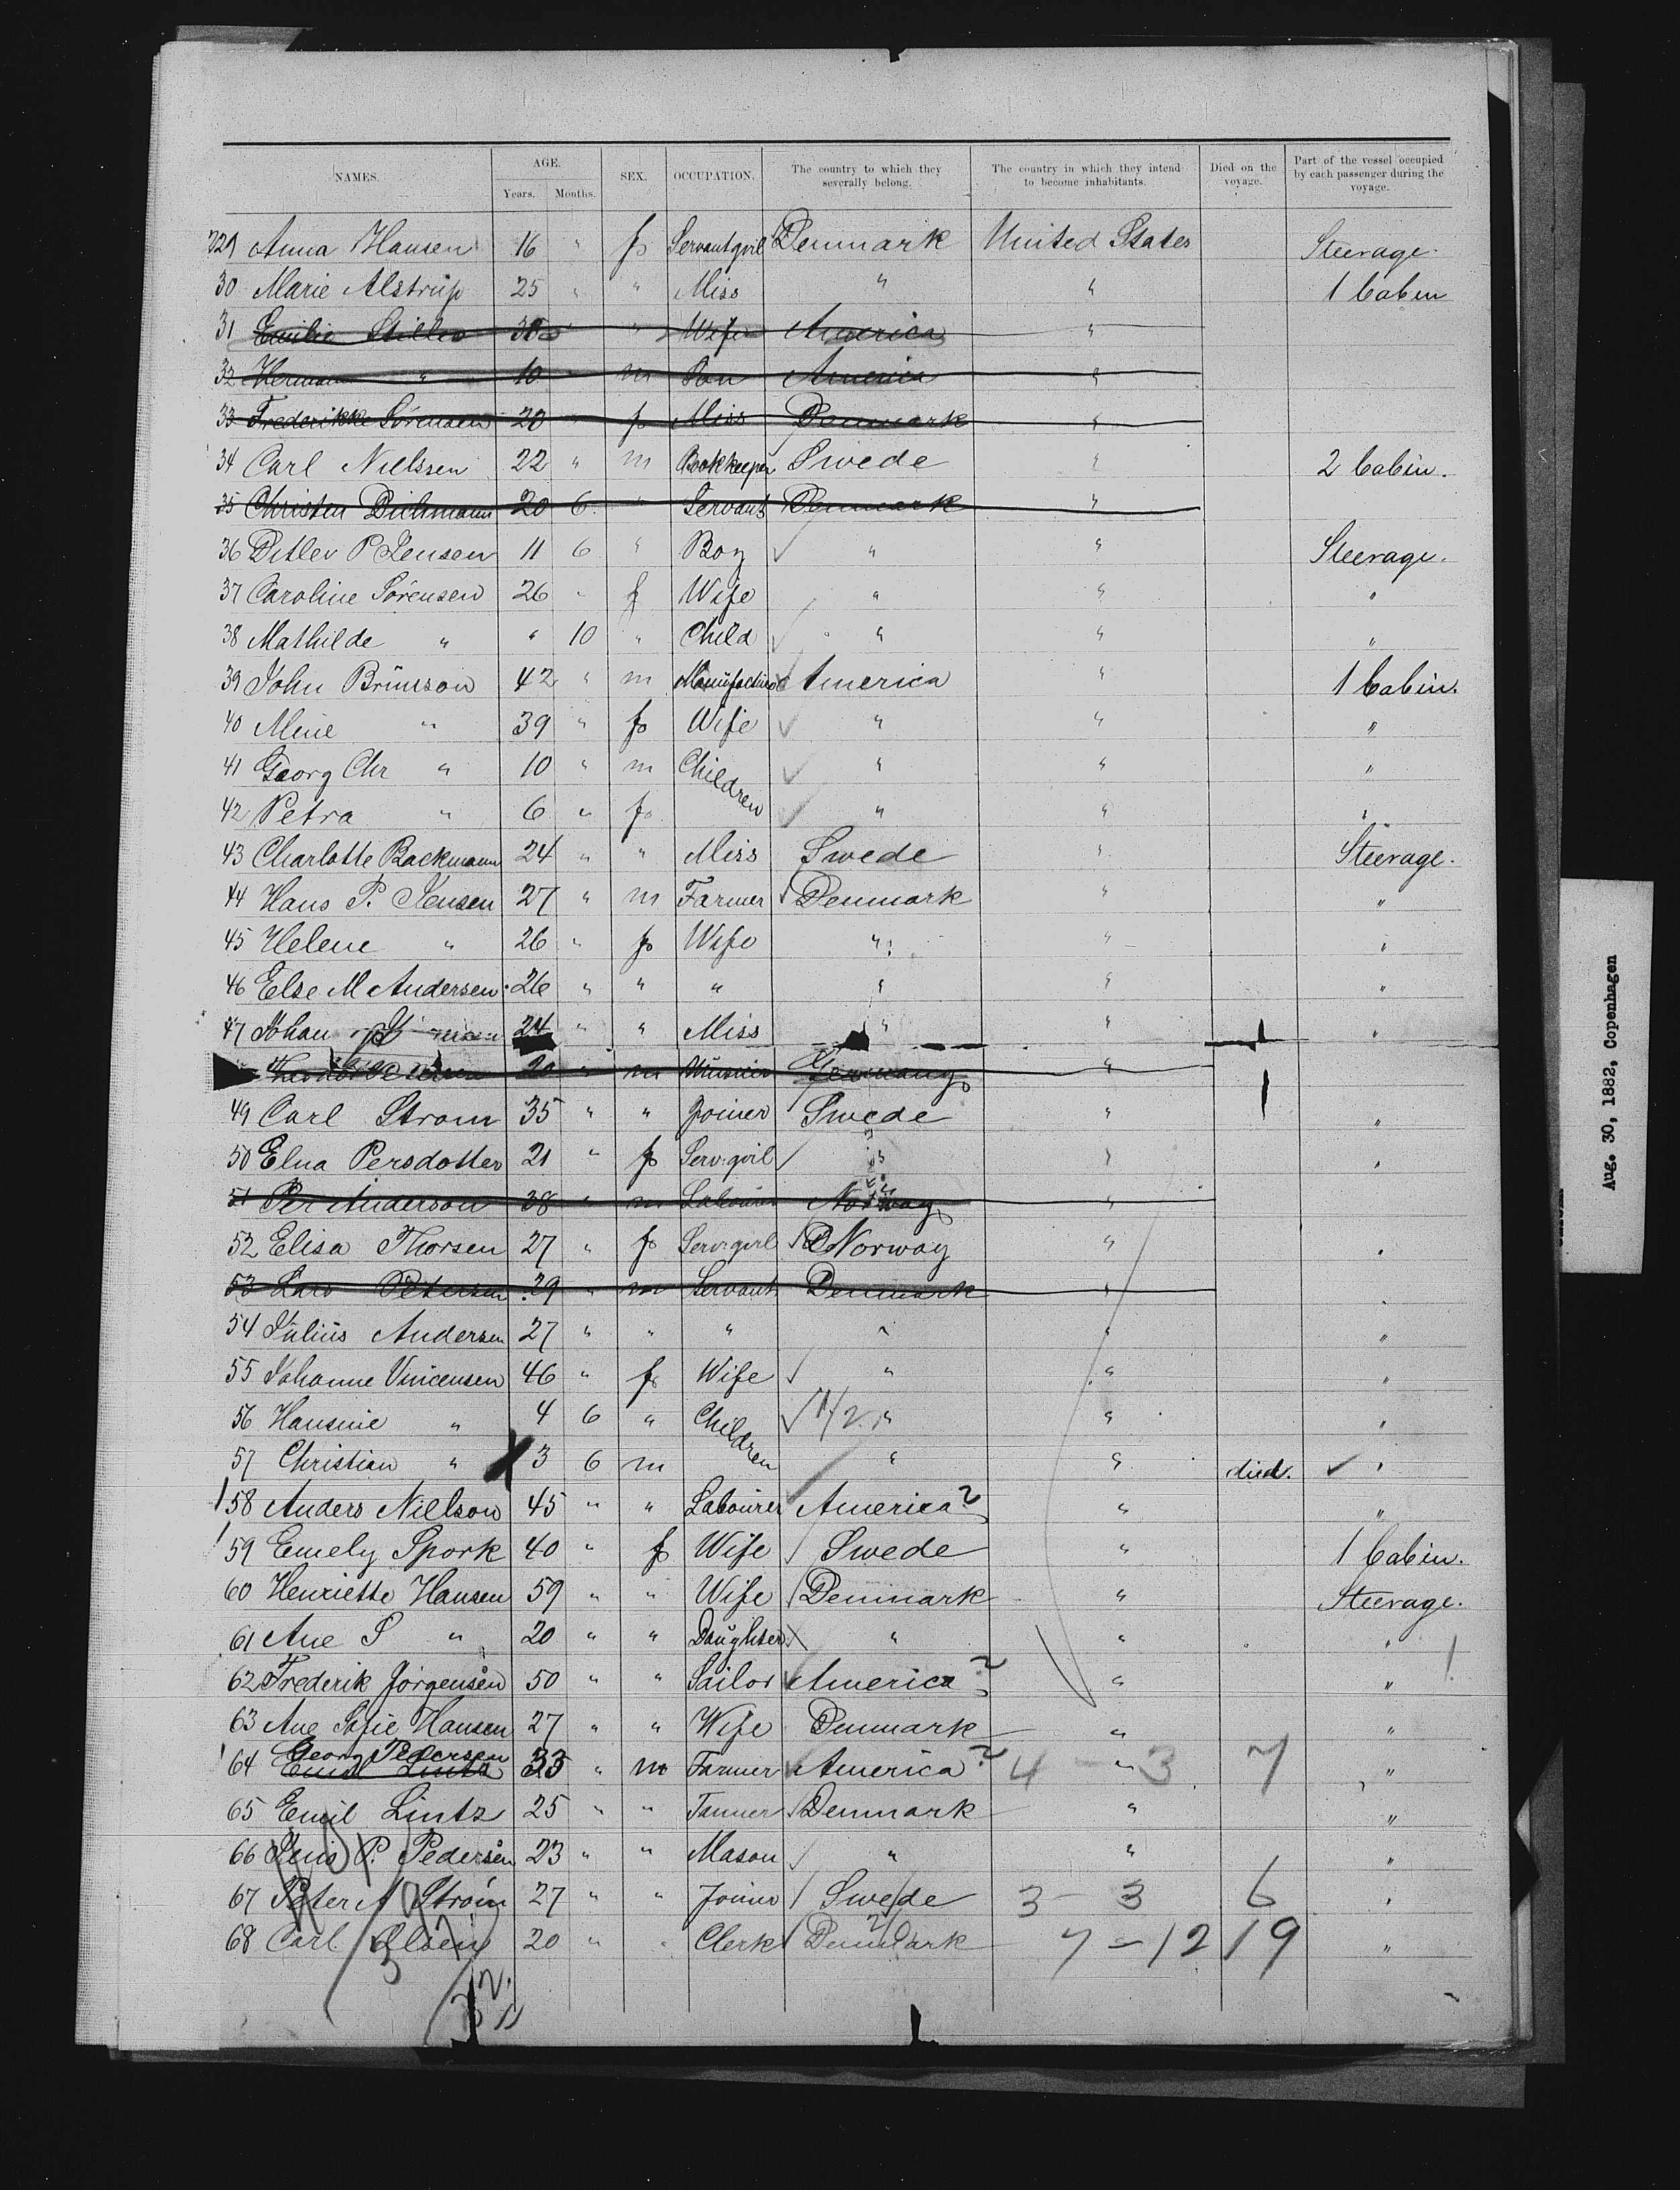 NAMES. AGE. Years. Months. SEX. OCCUPATION. The country to which they severally belong. The country in which they intend to become inhabitants. Died on the voyage. Part of the vessel occupied by each passenger during the voyage.
729 Anna Hansen 16 " f Servantgirl Denmark United States Steerage.
30 Marie Alstrup 25 " " Miss " " 1 Cabin
31 Emilie Stiller " " Wife America "
32 Herman " 10 m Son America "
33 Frederikke Sörensen 20 f Miss Denmark "
34 Carl Nielssen 22 " m Bookkeeper Swede " 2 Cabin.
35 Christen Dichmann 20 6 " Servant Denmark "
36 Ditlev P Jensen 11 6 " Boy " " Steerage.
37 Caroline Sörensen 26 " f Wife " " "
38 Mathilde " " 10 " Child " " "
39 John Brünsson 42 " m America " 1 Cabin.
40 Mine " 39 " f Wife " " "
41 Georg Chr " 10 " m Children " " "
42 Petra " 6 " f " " "
43 Charlotte Backmann 24 " " Miss Swede " Steerage.
44 Hans P. Jensen 27 " m Farmer Denmark " "
45 Helene " 26 " f Wife " " "
46 Else M Andersen 26 " " " " " "
47 Johan 24 " " Miss " " "
20 " m Germany "
49 Carl Strom 35 " " Joiner Swede " "
50 Elna Persdotter 21 " f Serv: girl " " "
51 Per Anderson 38 " m Labourer Norway "
52 Elisa Thorsen 27 " f Serv: girl Norway " "
53 Lars Petersen 29 " m Servant Denmark "
54 Julius Andersen 27 " " " " " "
55 Johanne Vincensen 46 " f Wife " " "
56 Hansine " 4 6 " Children " " "
57 Christian " 3 6 m " " died. "
58 Anders Nielson 45 " " Labourer America ? " "
59 Emely Spork 40 " f Wife Swede " 1 Cabin.
60 Henriette Hansen 59 " " Wife Denmark " Steerage.
61 Ane S " 20 " " Daughter " " "
62 Frederik Jörgensen 50 " " Sailor America ? " "
63 Ane Sofie Hansen 27 " " Wife Denmark " "
Georg Pedersen
64 Emil Lintz 33 " m Farmer America ? 4 - 3 7 "
65 Emil Lintz 25 " " Tanner Denmark " "
66 Jens P. Pedersen 23 " " Mason " " "
67 Peter A Strom 27 " " Joiner Swede 3 - 3 6 "
68 Carl Olsen 20 " " Clerk Denmark 7 - 12 19 "
Aug. 30, 1882, Copenhagen